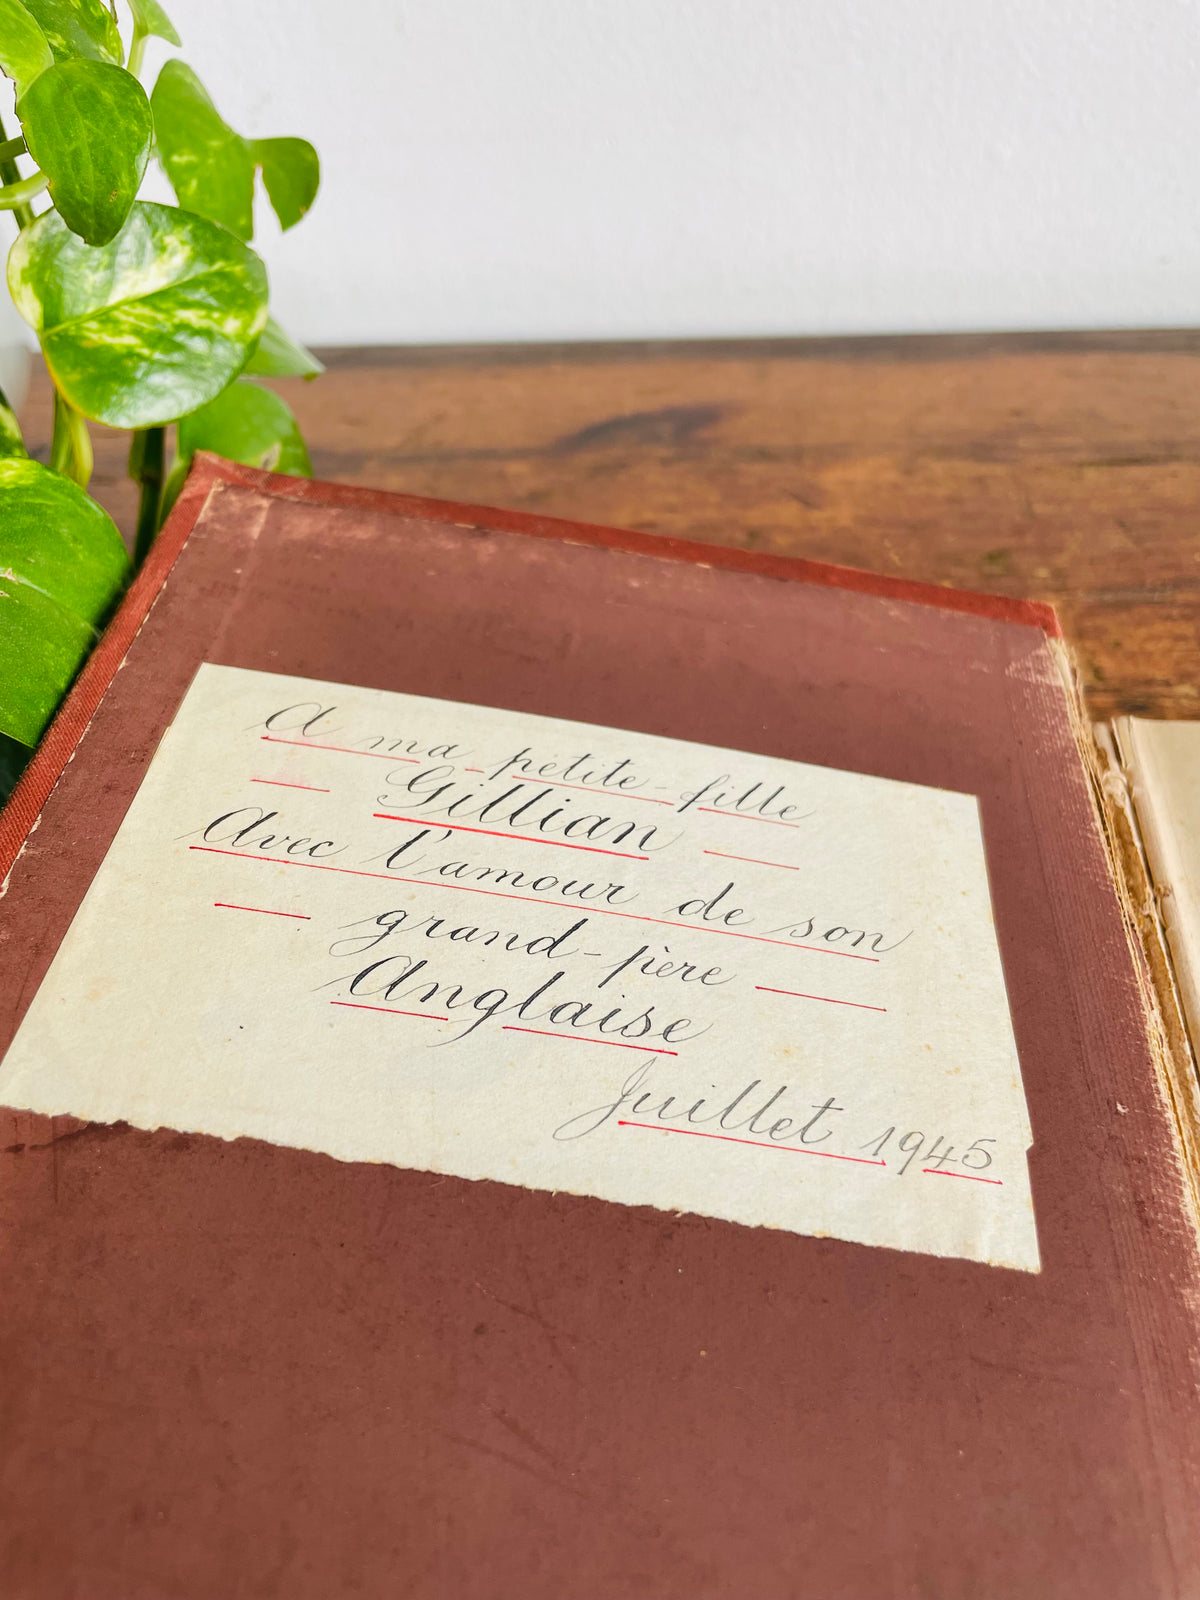 A ma petite-fille
— Gillian —
Avec l'amour de son
— grand-père —
Anglaise
Juillet 1945